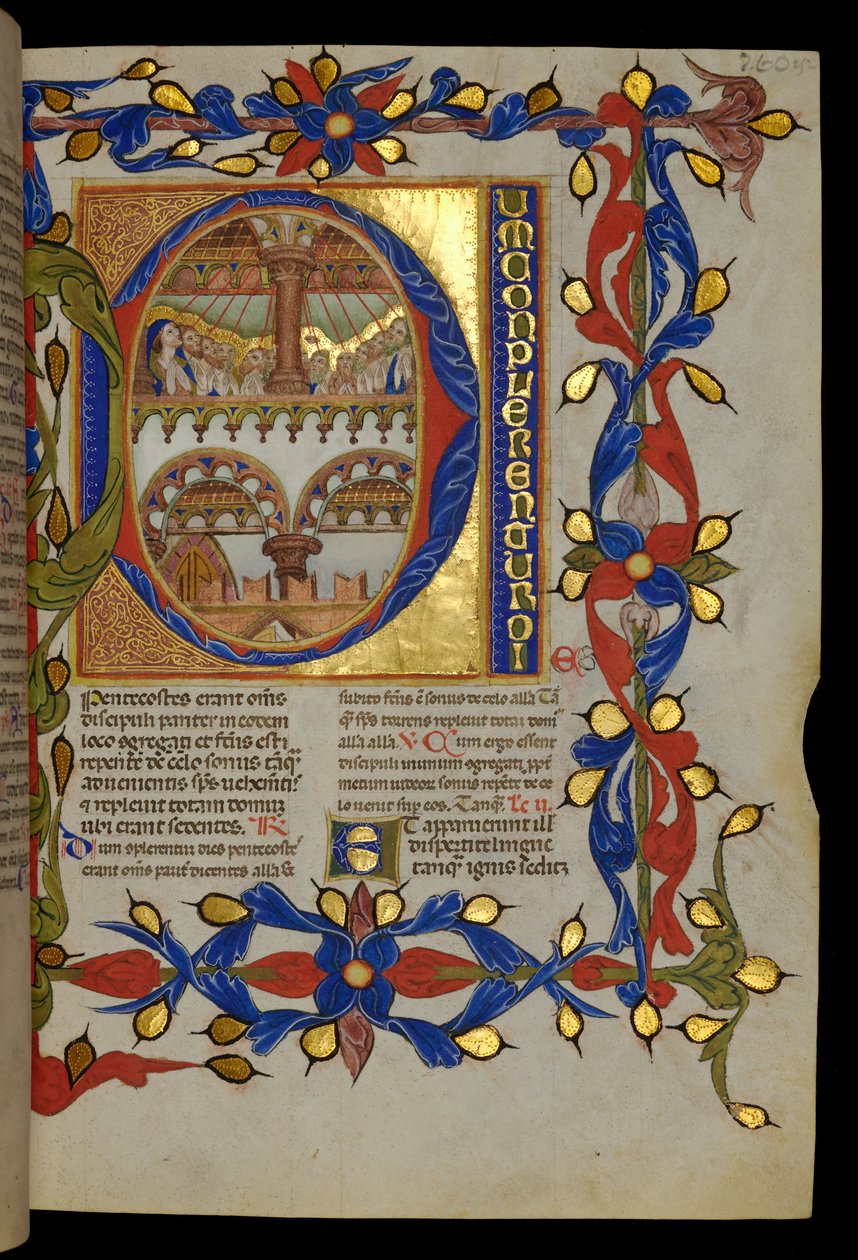 DUMCONPLERENTURDI
Pentecostes erant om̄s
discipuli pariter in eodem
loco ɔgregati et fc̄us est
repente de celo sonus tāq̄
aduenientis sp̄s uehemētis
⁊ repleuit totam domum
ubi erant sedentes. R̸
Dum ɔplerentur dies pentecostes
erant om̄s pariter dicentes alla Et
subito fc̄us ē sonus de celo alla Tā
q̄ sp̄s torrens repleuit totaz domū
alla alla. V. Cum ergo essent
discipuli in unum ɔgregati ppt̄
metum iudeor sonus repēte de ce
lo uenit sup eos. Tanq̄. Le ii.
ET apparuerunt ill
dispertite lingue
tanq̄ ignis seditq